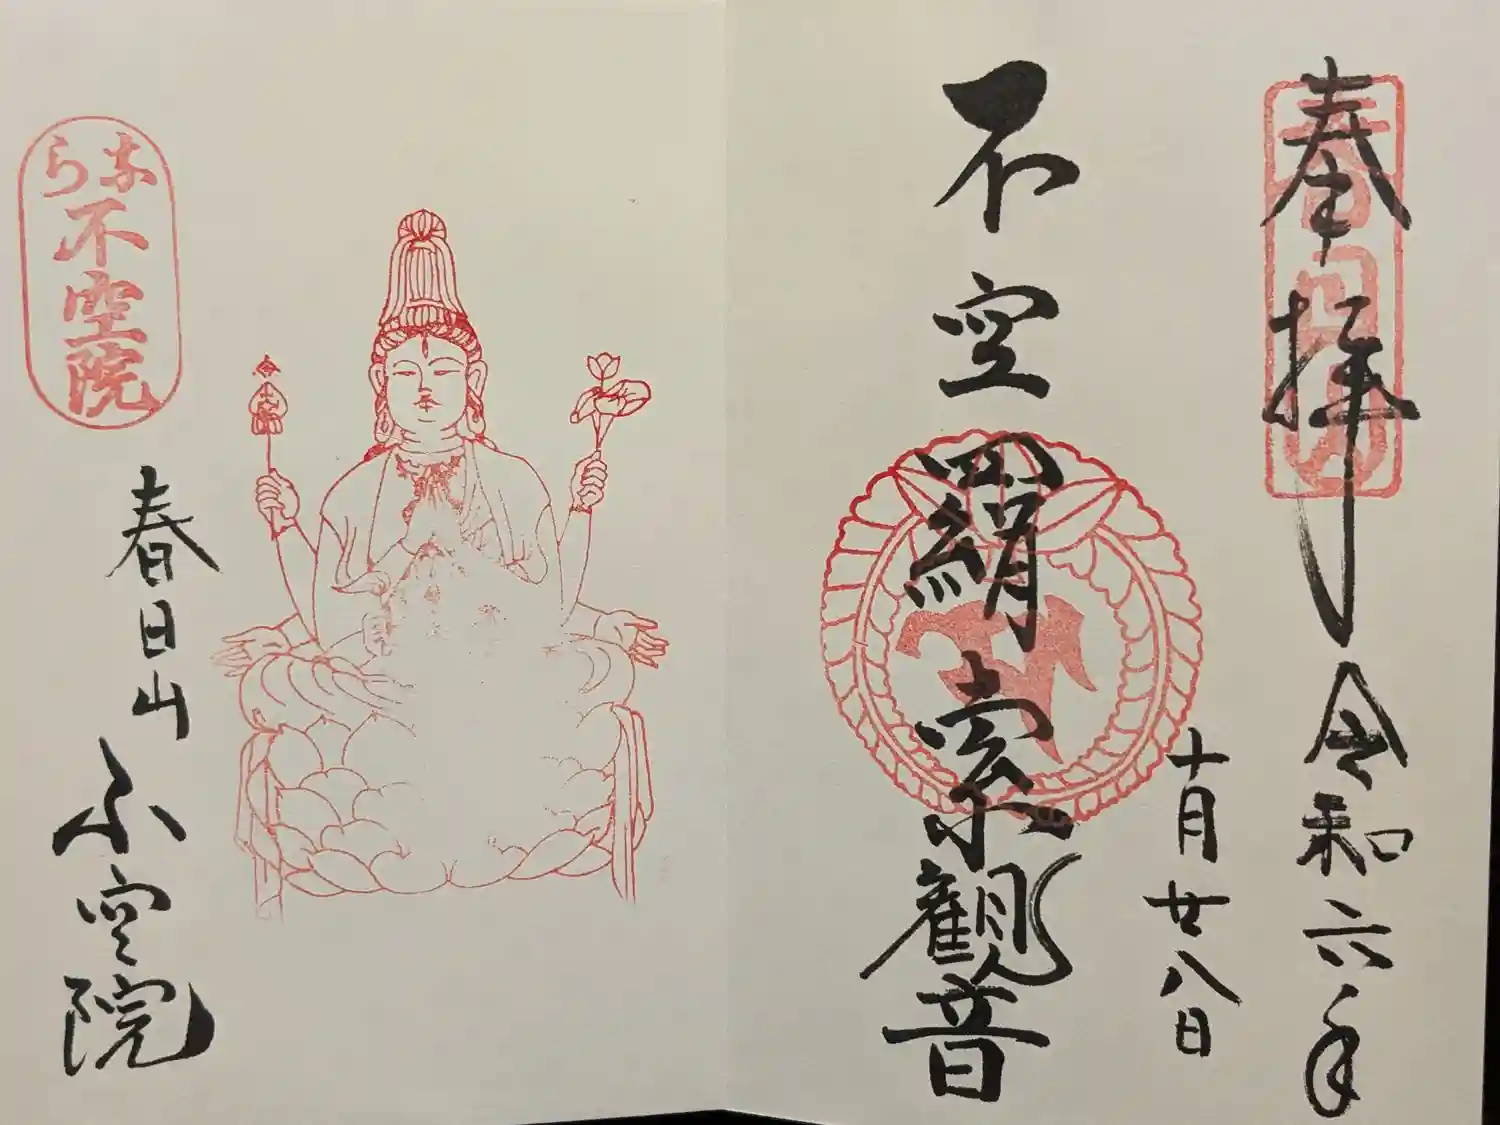 奉拝
令和六年
十月廿八日
不空羂索観音
春日山
不空院
なら
不空院